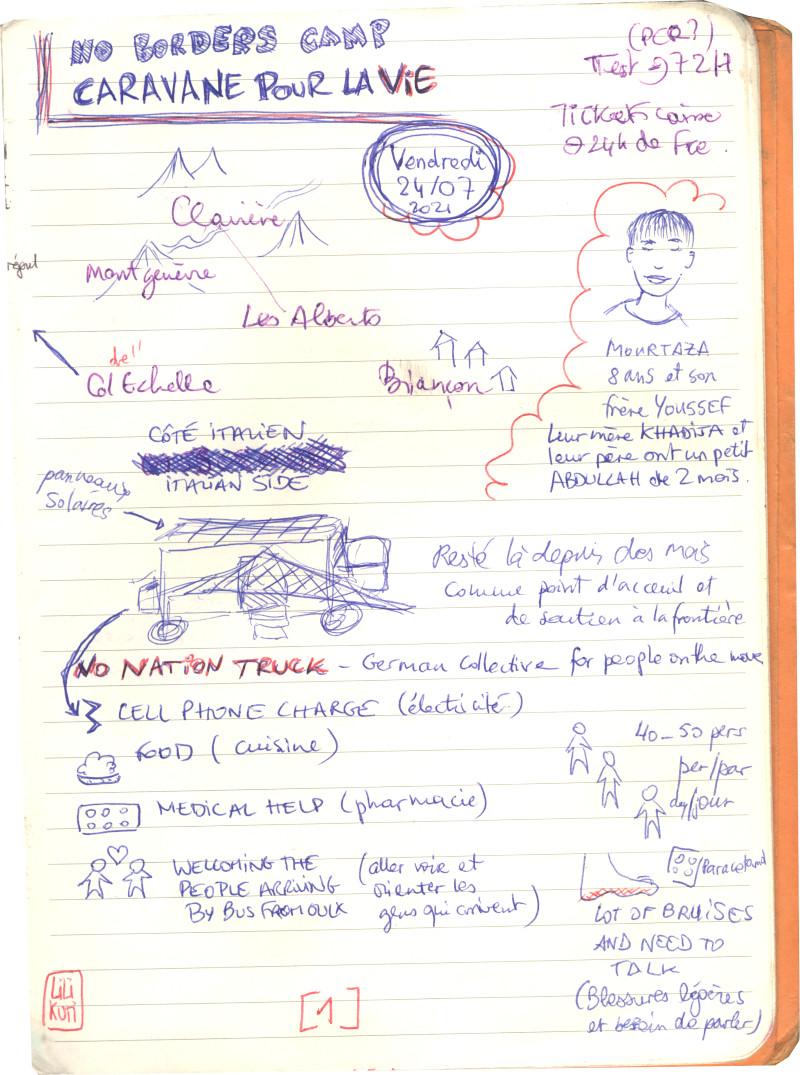 NO BORDERS CAMP
CARAVANE POUR LA VIE
(PCR?)
Test 72H
Tickets
24h de
Vendredi
24/07
2021
Clavière
Montgenèvre
Les Alberts
del'
Col Echelle
Briançon
MOURTAZA
8 ans et son
frère YOUSSEF
leur mère KHADIJA et
leur père ont un petit
ABDULLAH de 2 mois.
CÔTÉ ITALIEN
ITALIAN SIDE
panneaux
Solaires
Resté là depuis des mois
comme point d'acceuil et
de soutien à la frontière
NO NATION TRUCK - German collective for people on the move
CELL PHONE CHARGE (électicité)
FOOD (cuisine)
MEDICAL HELP (pharmacie)
40-50 pers
per/par
day/jour
WELCOMING THE
PEOPLE ARRIVING
BY BUS FROM OULX
(aller voir et
orienter les
gens qui arrivent)
LOT OF BRUISES
AND NEED TO
TALK
(Blessures légères
et besoin de parler)
LiLi
KUN
[1]